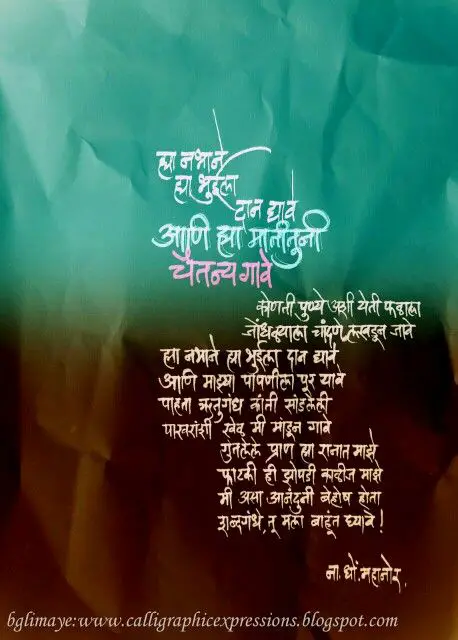 ह्या नभाने
ह्या भुईला
दान द्यावे
आणि ह्या मातीतुनी
चैतन्य गावे
कोणती पुण्ये अशी येती फळाला
जोंधळ्याला चांदणे लखडून जावे
ह्या नभाने ह्या भुईला दान द्यावे
आणि माझ्या पापणीला पुर यावे
पाहता ऋतुगंध कांती सांडलेली
पाखरांशी खेळ मी मांडून गावे
गुंतलेले प्राण ह्या रानात माझे
फाटकी ही झोपडी काळीज माझे
मी असा आनंदुनी बेहोष होता
शब्दगंधे, तू मला बाहूंत घ्यावे!
ना. धों. महानोर.
bglimaye:www.calligraphicexpressions.blogspot.com